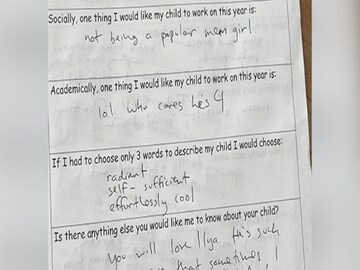 Socially, one thing I would like my child to work on this year is:
not being a popular mean girl
Academically, one thing I would like my child to work on this year is:
lol who cares he's 4
If I had to choose only 3 words to describe my child I would choose:
radiant
self-sufficient
effortlessly cool
Is there anything else you would like me to know about your child?
You will love Ilya. He's such
that sometimes I